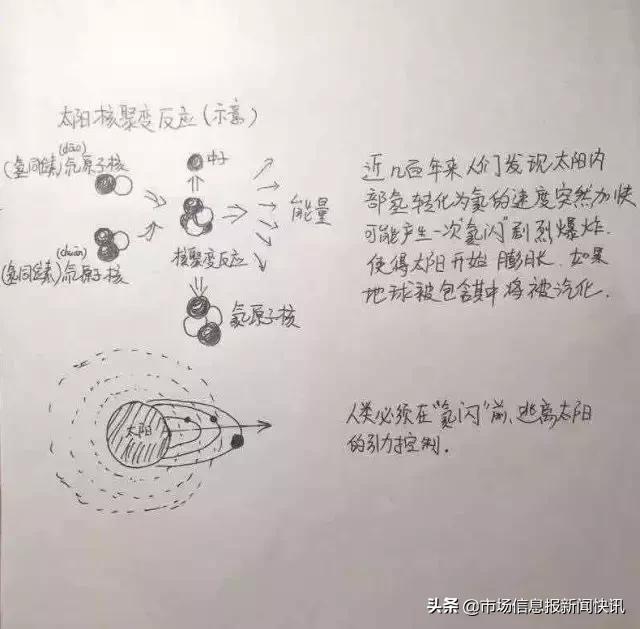 太阳核聚变反应(示意)
(dāo)
(氢同位素)氘原子核
中子
能量
核聚变反应
(chuān)
(氢同位素)氚原子核
氦原子核
太阳
近几百年来人们发现太阳内
部氢转化为氦的速度突然加快
可能产生一次"氦闪"剧烈爆炸.
使得太阳开始膨胀.如果
地球被包含其中将被汽化.
人类必须在"氦闪"前,逃离太阳
的引力控制.
头条 @市场信息报新闻快讯